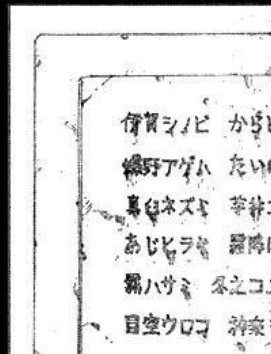 伊賀シノビ から
嬢野アゲハ たい
真白ネズミ 芋井
あじヒラキ 霜降
霧ハサミ 冬之コ
目空ウロコ 神奈